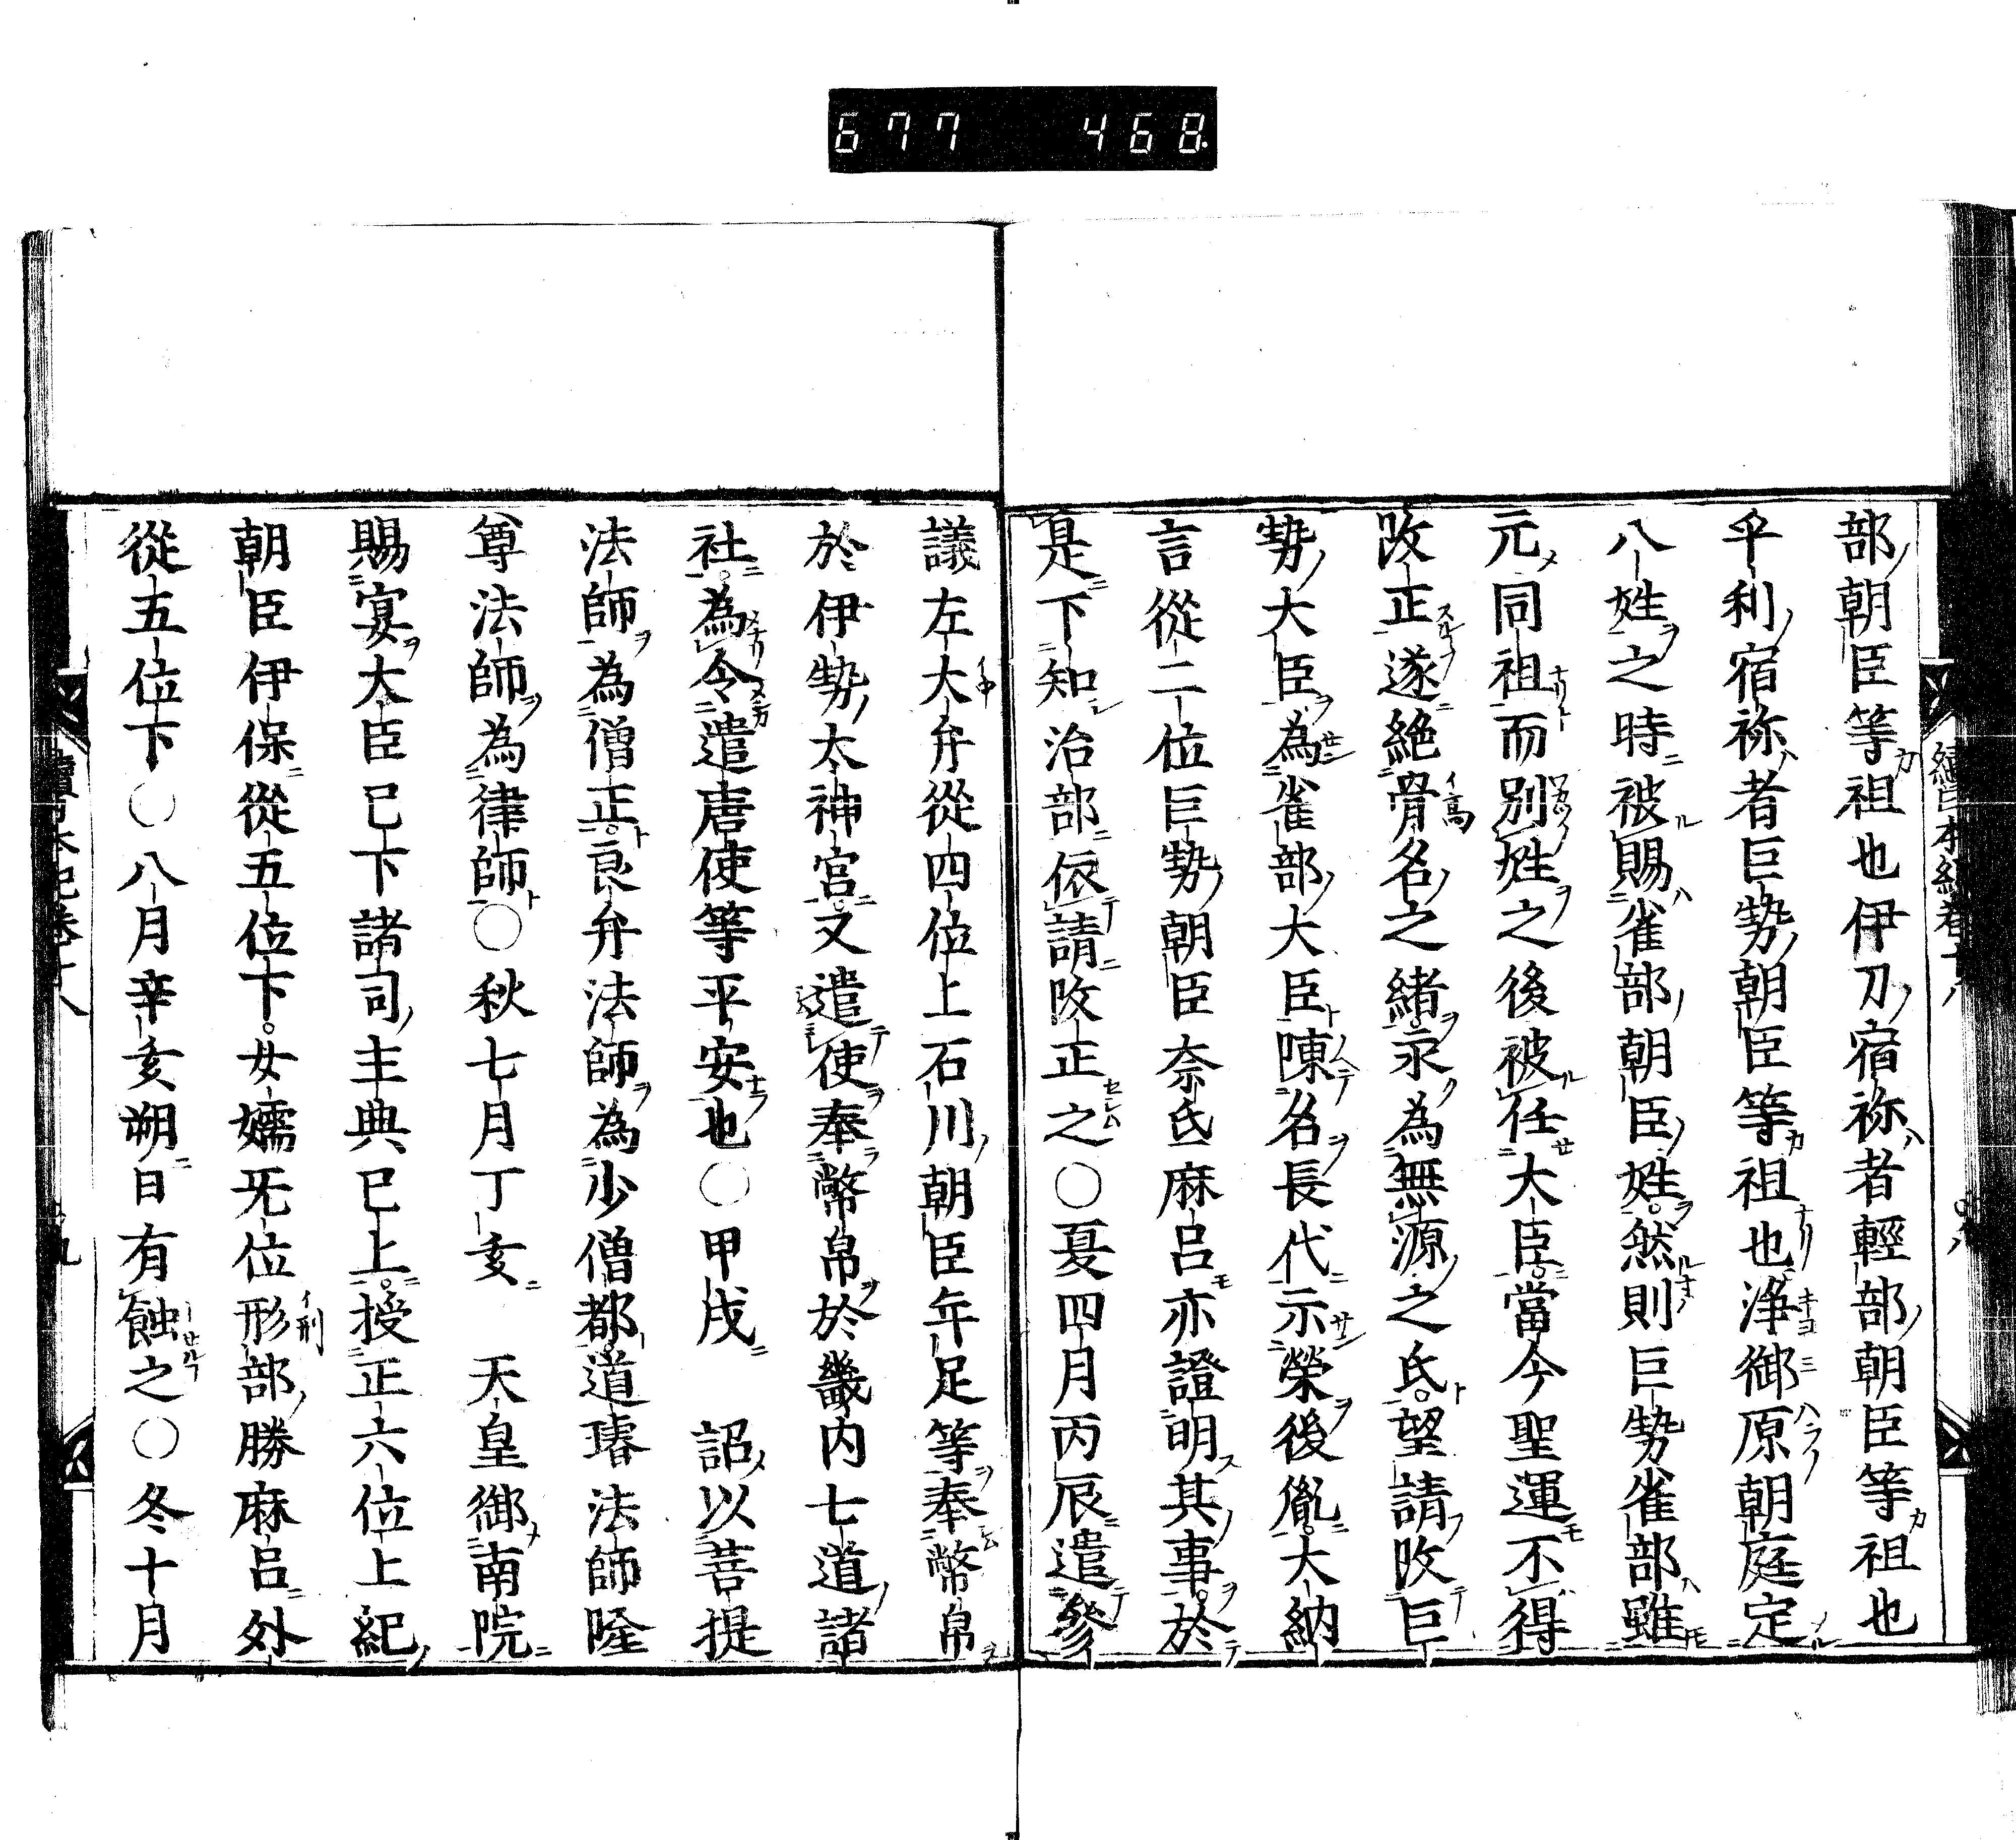 677 468
部朝臣等祖也伊刀宿祢者輕部朝臣等祖也
乎利宿祢者巨勢朝臣等祖也浄御原朝庭定
八姓之時被賜雀部朝臣姓然則巨勢雀部雖
元同祖而別姓之後被任大臣當今聖運不得
改正遂絶骨名之緒永為無源之氏望請改巨
勢大臣為雀部大臣陳名長代示榮後胤大納
言從二位巨勢朝臣奈氐麻呂亦證明其事於
是下知治部依請改正之○夏四月丙辰遣參
議左大弁從四位上石川朝臣年足等奉幣帛
於伊勢太神宮又遣使奉幣帛於畿内七道諸
社為令遣唐使等平安也○甲戌 詔以菩提
法師為僧正良弁法師為少僧都道璿法師隆
尊法師為律師○秋七月丁亥 天皇御南院
賜宴大臣已下諸司主典已上授正六位上紀
朝臣伊保從五位下女孺旡位形部勝麻呂外
從五位下○八月辛亥朔日有蝕之○冬十月